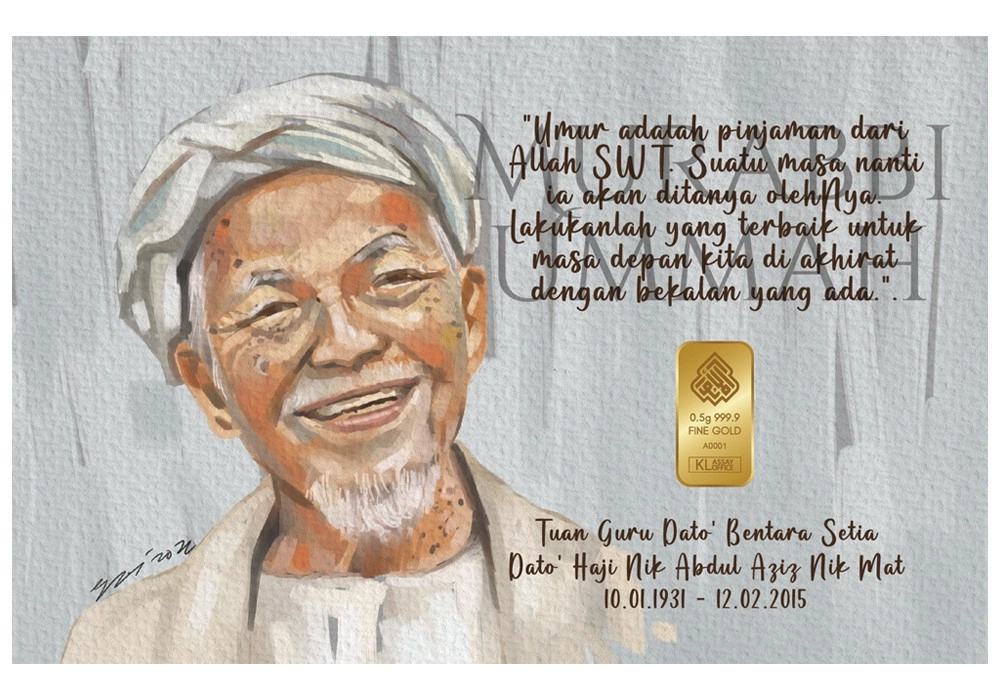 "Umur adalah pinjaman dari
Allah SWT. Suatu masa nanti
ia akan ditanya olehNya.
Lakukanlah yang terbaik untuk
masa depan kita di akhirat
dengan bekalan yang ada.".
MURABBI
UMMAH
0.5g 999.9
FINE GOLD
A0001
KL ASSAY
OFFICE
Tuan Guru Dato' Bentara Setia
Dato' Haji Nik Abdul Aziz Nik Mat
10.01.1931 - 12.02.2015